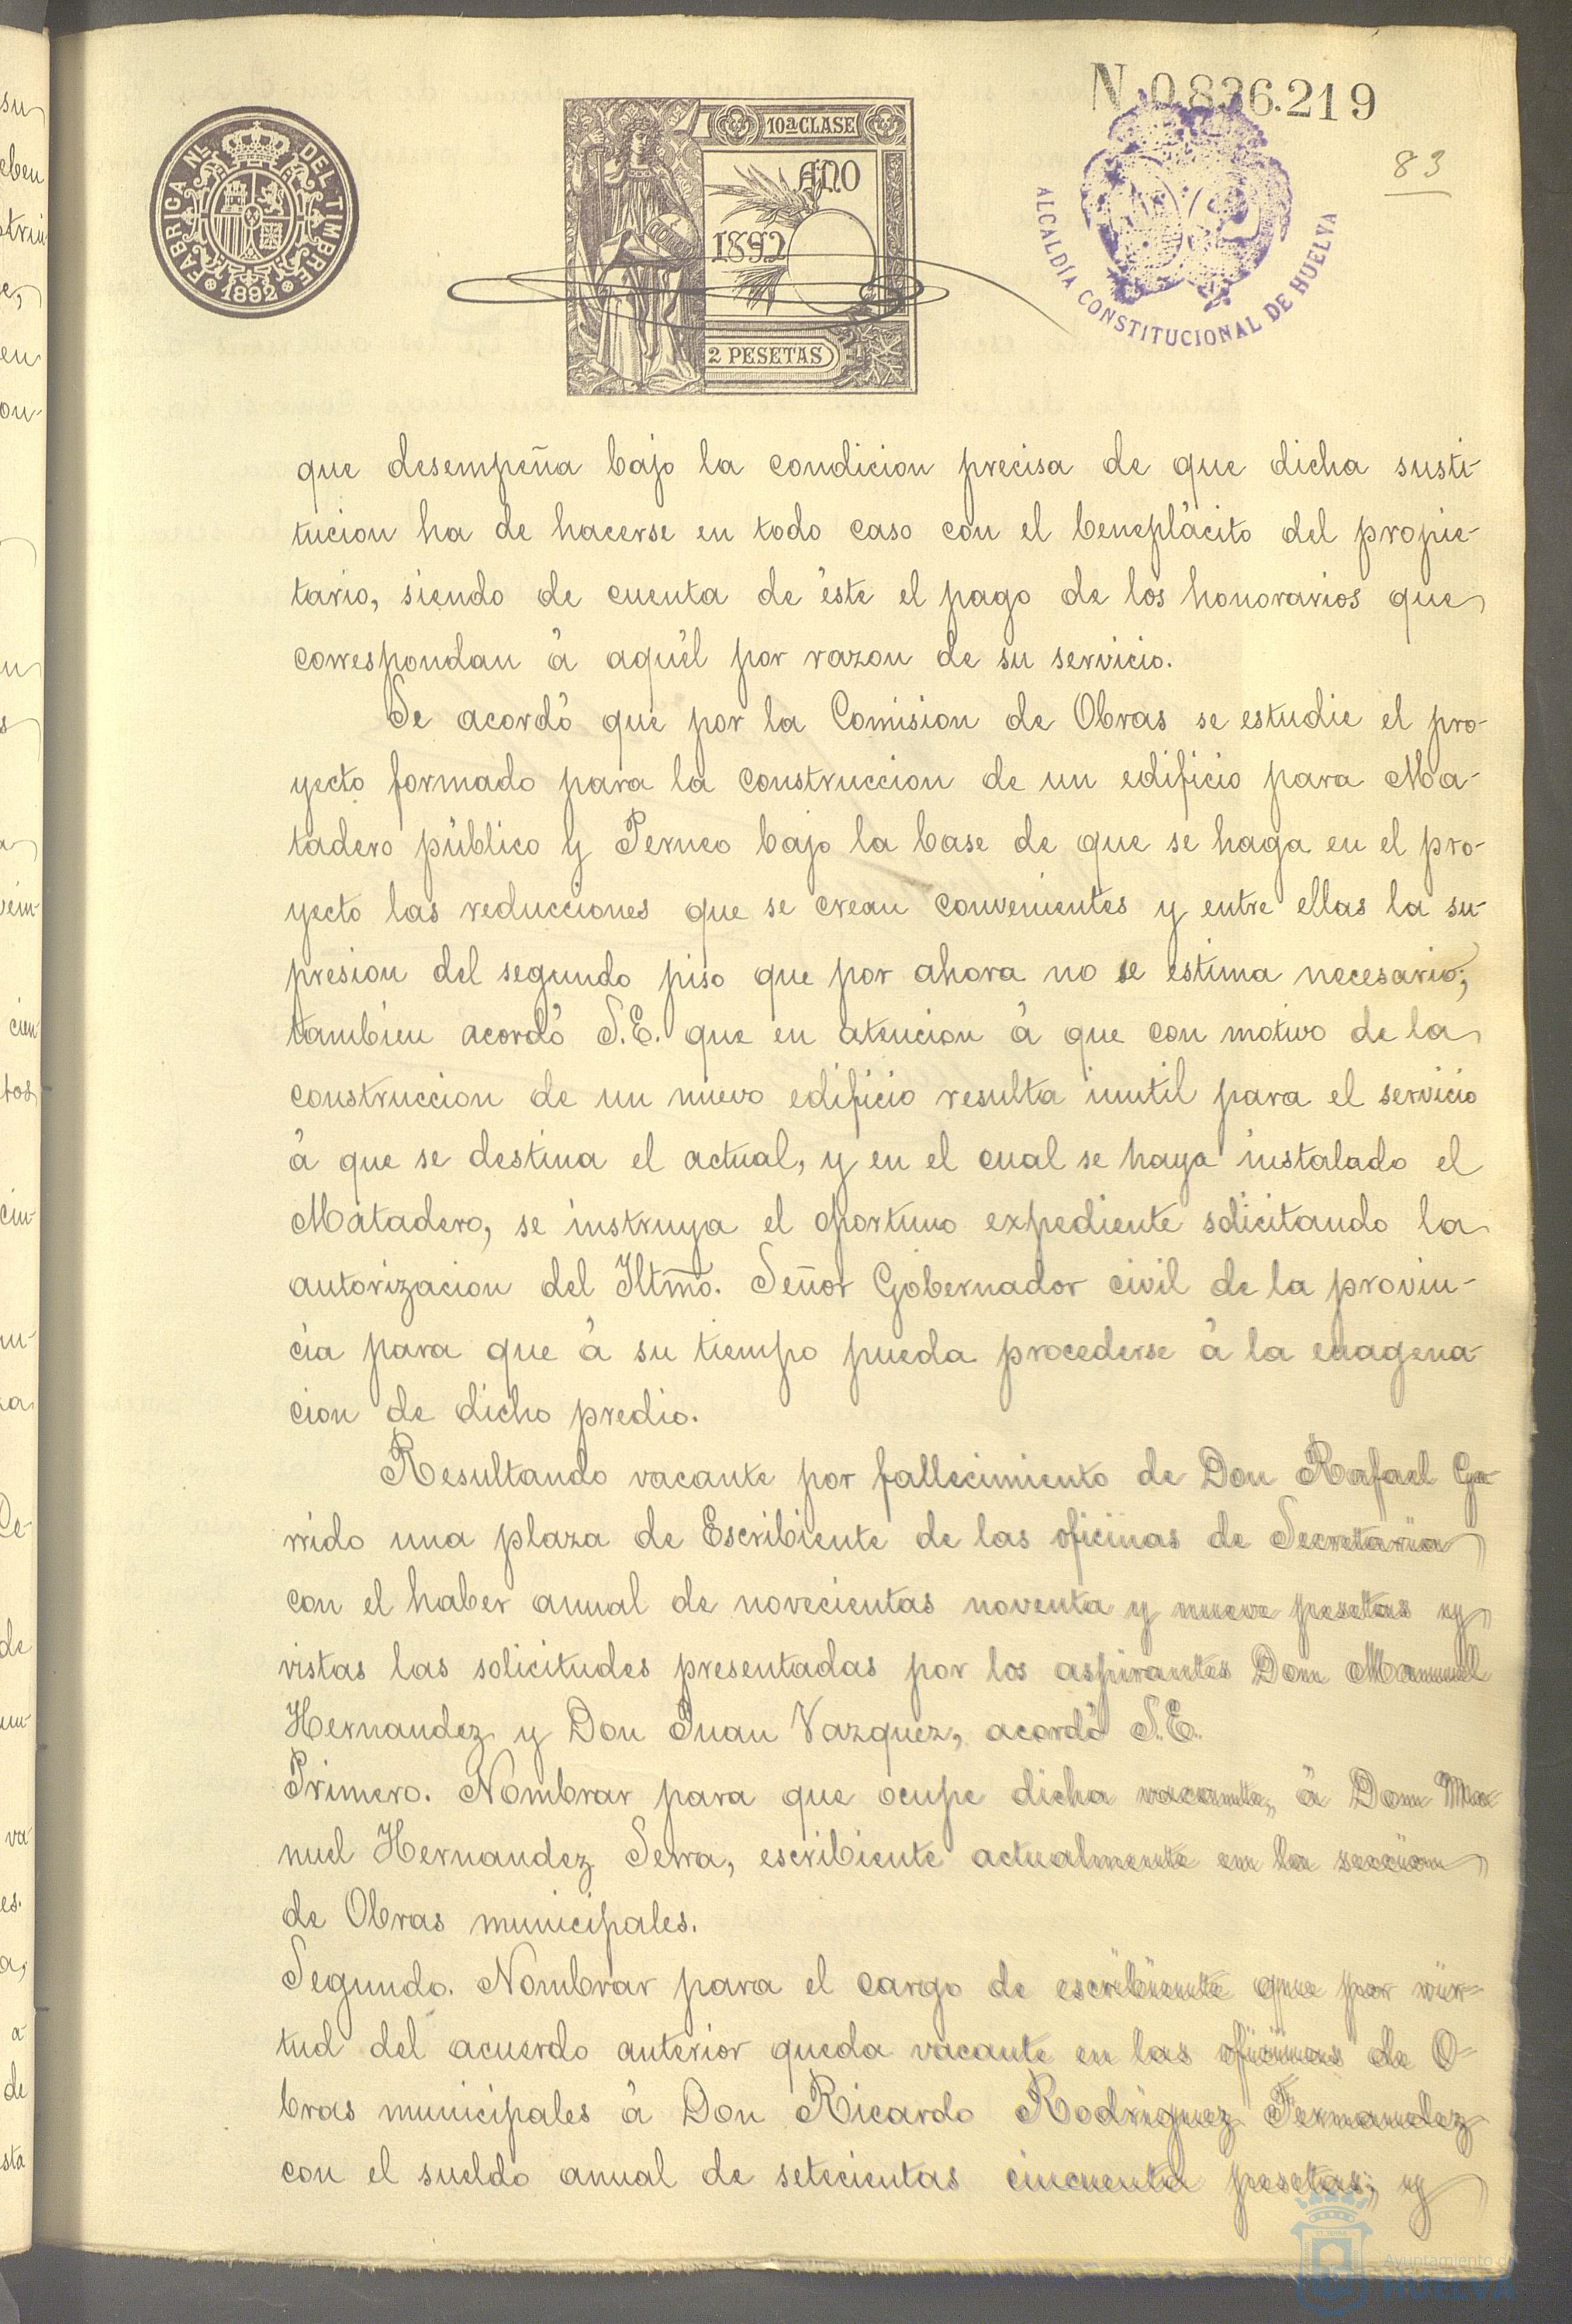 N. 0.836.219
83
FABRICA NL. DEL TIMBRE
1892
10ª CLASE
AÑO
1892
2 PESETAS
ALCALDÍA CONSTITUCIONAL DE HUELVA
que desempeña bajo la condicion precisa de que dicha susti-
tucion ha de hacerse en todo caso con el beneplácito del propie-
tario, siendo de cuenta de éste el pago de los honorarios que
correspondan á aquél por razon de su servicio.
Se acordó que por la Comision de Obras se estudie el pro-
yecto formado para la construccion de un edificio para Ma-
tadero público y Perneo bajo la base de que se haga en el pro-
yecto las reducciones que se crean convenientes y entre ellas la su-
presion del segundo piso que por ahora no se estima necesario;
tambien acordó S.E. que en atencion á que con motivo de la
construccion de un nuevo edificio resulta inutil para el servicio
á que se destina el actual, y en el cual se haya instalado el
Matadero, se instruya el oportuno expediente solicitando la
autorizacion del Iltmo. Señor Gobernador civil de la provin-
cia para que á su tiempo pueda procederse á la enagena-
cion de dicho predio.
Resultando vacante por fallecimiento de Don Rafael Ga-
rrido una plaza de Escribiente de las oficinas de Secretaria
con el haber anual de novecientas noventa y nueve pesetas y
vistas las solicitudes presentadas por los aspirantes Don Manuel
Hernandez y Don Juan Vazquez, acordó S.E.
Primero. Nombrar para que ocupe dicha vacante, á Don Ma-
nuel Hernandez Serra, escribiente actualmente en la seccion
de Obras municipales.
Segundo. Nombrar para el cargo de escribiente que por vir-
tud del acuerdo anterior queda vacante en las oficinas de O-
bras municipales á Don Ricardo Rodriguez Fernandez
con el sueldo anual de setecientas cincuenta pesetas; y
Ayuntamiento de
HUELVA